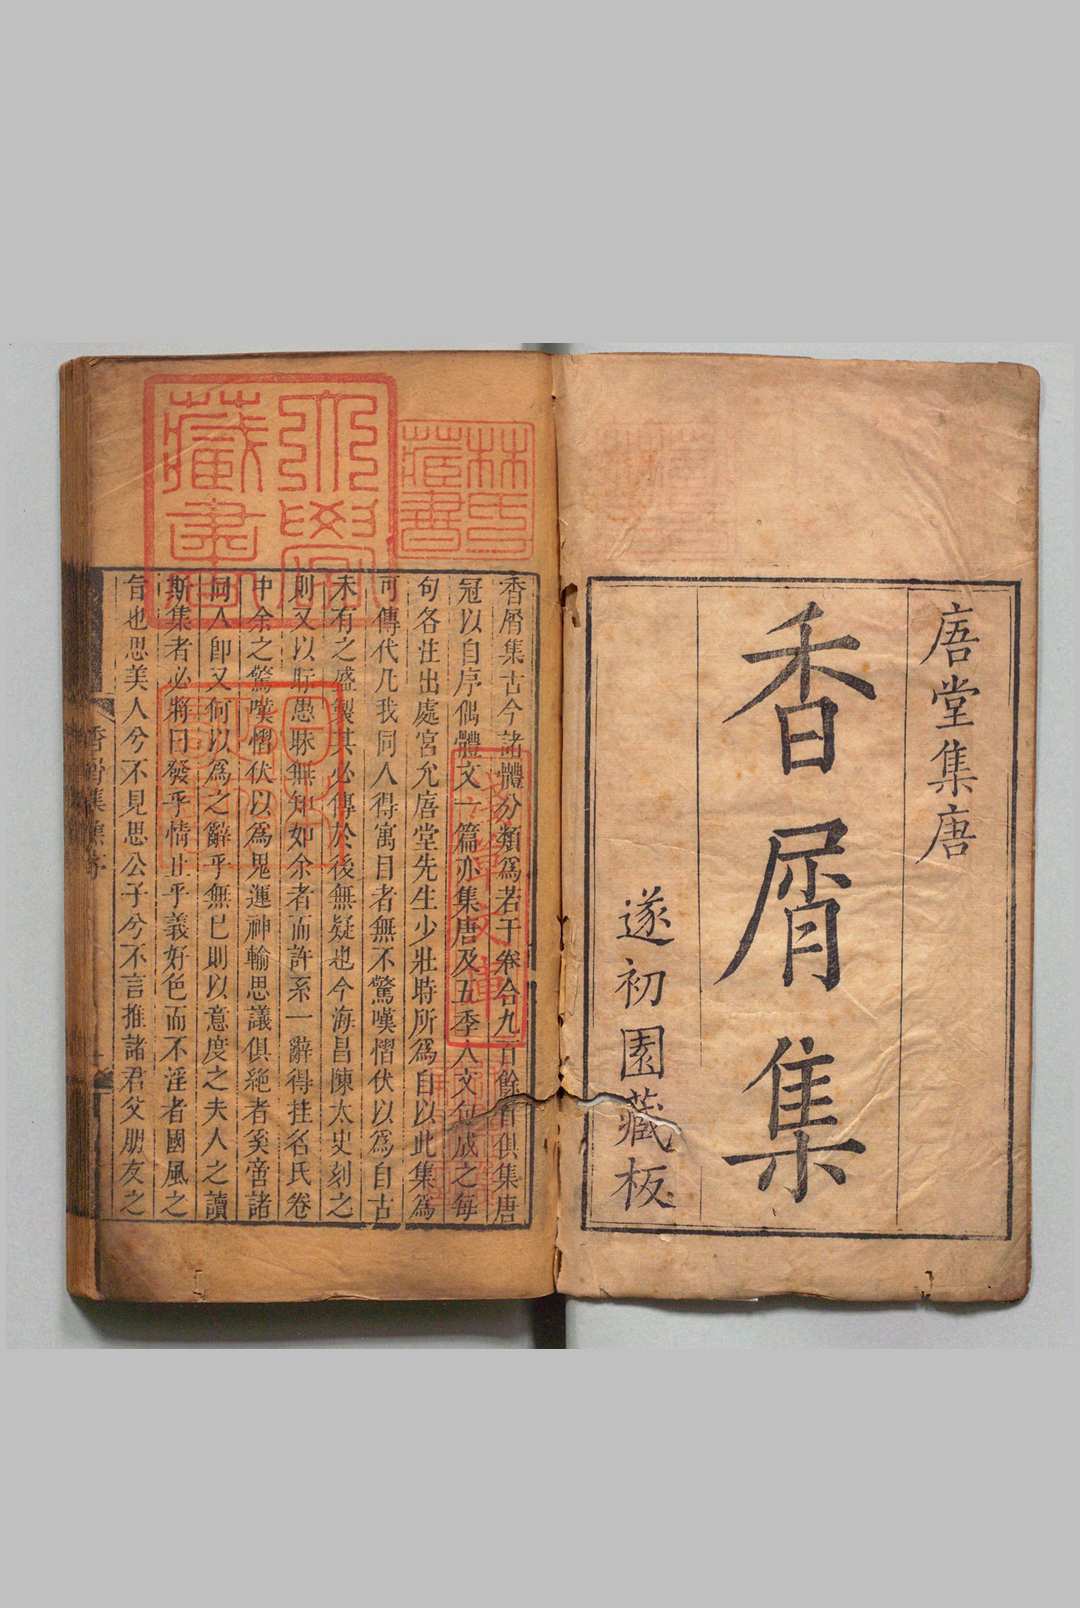 唐堂集唐
香屑集
遂初園藏板
林氏藏書
大學藏書
香屑集古今諸體分類為若干卷合九百餘首俱集唐
冠以自序偶體文一篇亦集唐及五季人文句成之每
句各注出處宮允唐堂先生少壯時所為自以此集為
可傳代凡我同人得寓目者無不驚嘆慴伏以為自古
未有之盛製其必傳於後無疑也今海昌陳太史刻之
則又以盱愚眯無知如余者而許系一辭得挂名氏卷
中余之驚嘆慴伏以為鬼運神輸思議俱絕者奚啻諸
同人即又何以為之辭乎無已則以意度之夫人之讀
斯集者必將曰發乎情止乎義好色而不淫者國風之
旨也思美人兮不見思公子兮不言推諸君父朋友之
香屑集